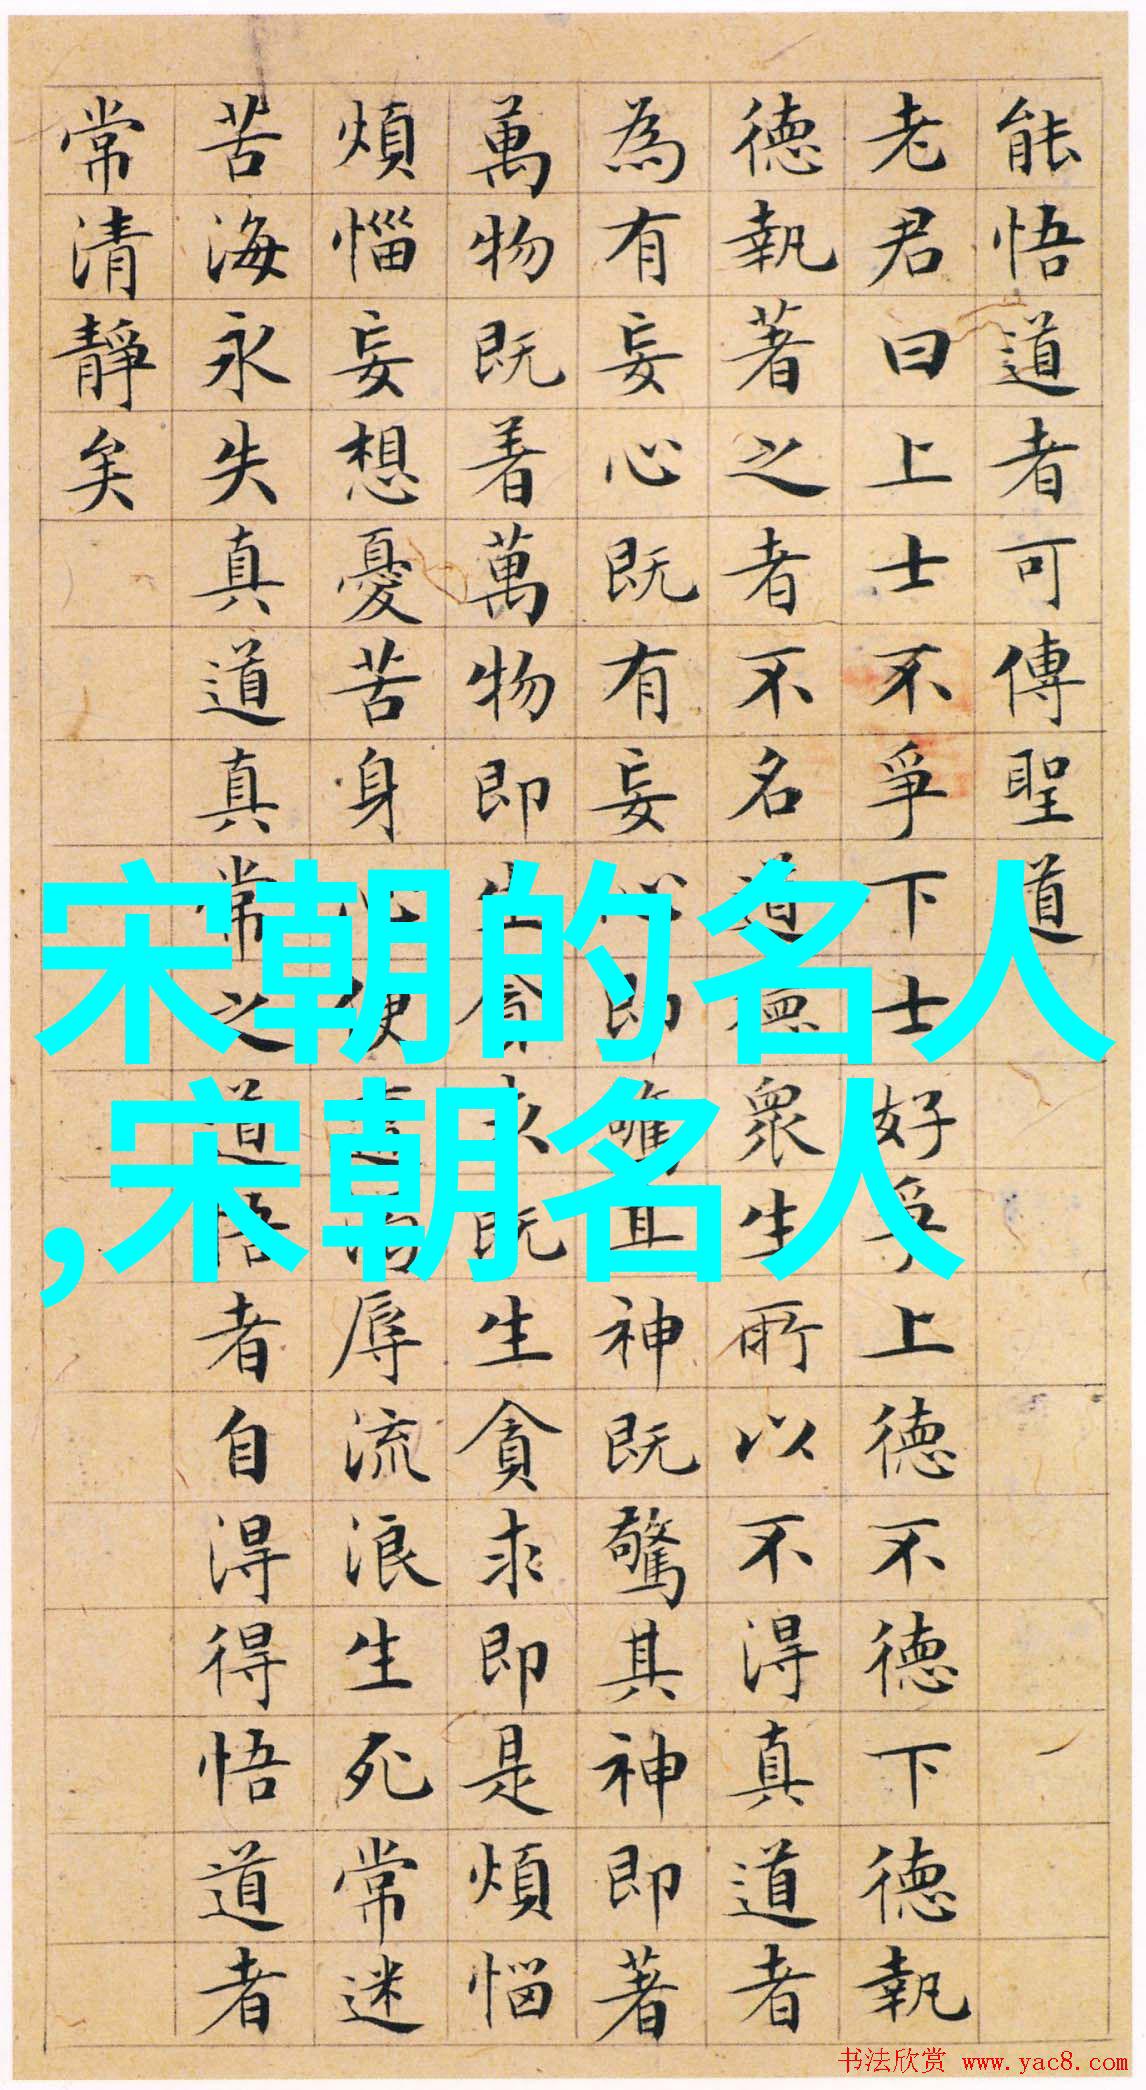 能悟道者可傳聖道
老君曰上士不爭下士好爭上德不德下德執
德執著之者不名道德眾生所以不得真道者
為有妄心既有妄心即驚其神既驚其神即著
萬物既着萬物即生貪求既生貪求即是煩惱
煩惱妄想憂苦身心便遭濁辱流浪生死常迷
苦海永失真道真常之道悟者自得得悟道者
常清靜矣
宋朝的名人
,宋朝名人
书法欣赏 www.yac8.com